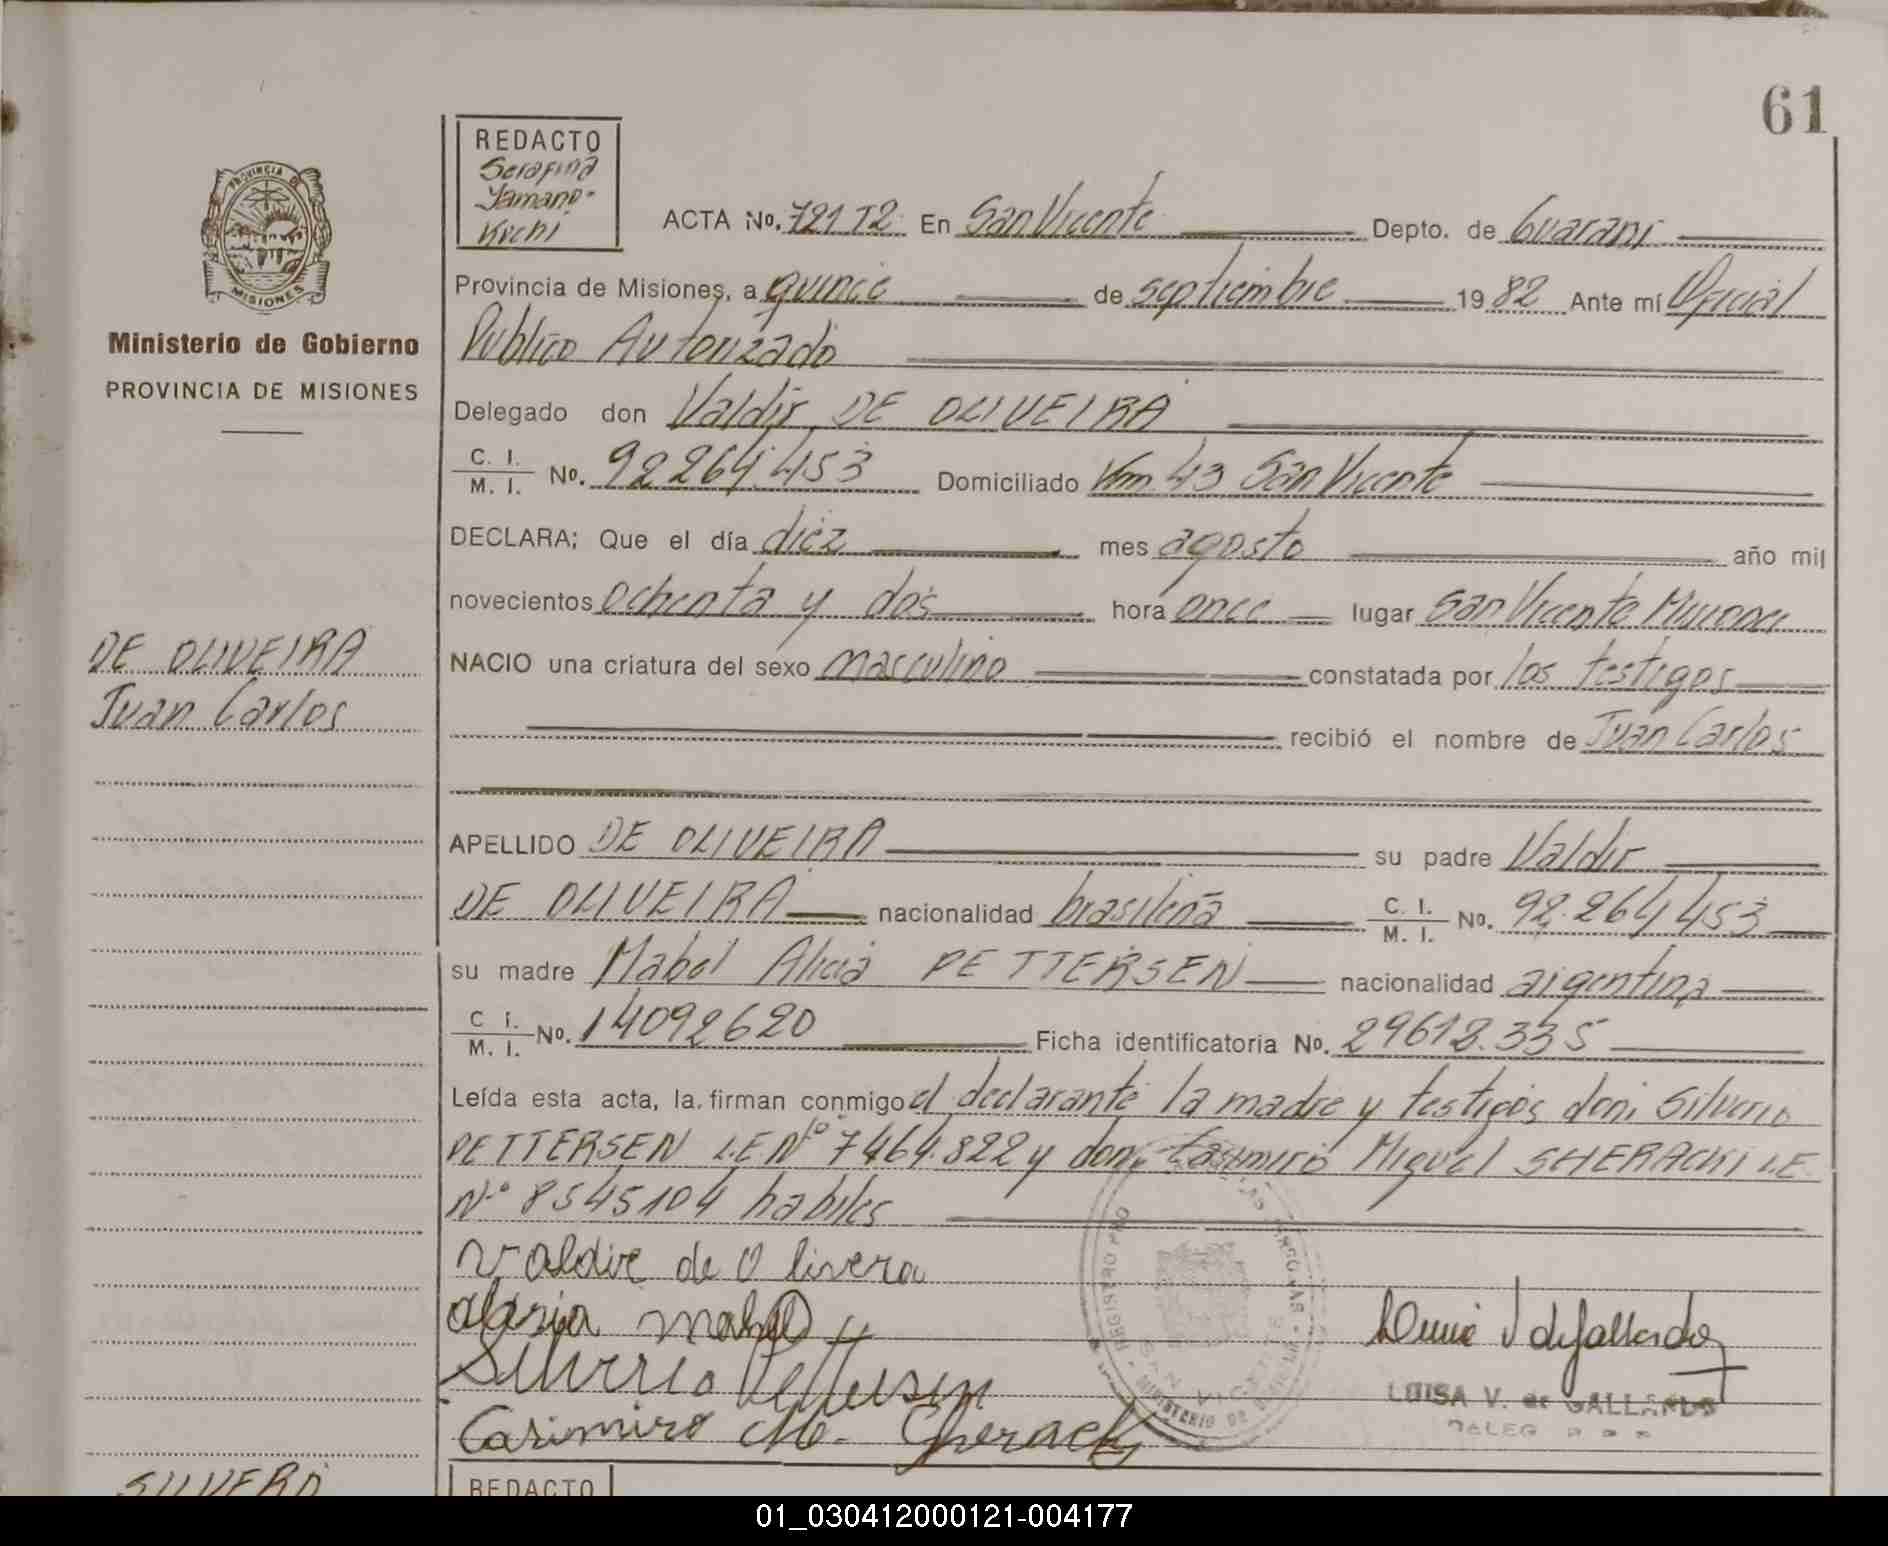 61
REDACTO
Serafina
Yamano-
Kuchi
PROVINCIA DE
MISIONES
Ministerio de Gobierno
PROVINCIA DE MISIONES
ACTA No. 721 T2 En San Vicente Depto. de Guarani
Provincia de Misiones, a quince de septiembre 1982 Ante mí Oficial
Publico Autorizado
Delegado don Valdir DE OLIVEIRA
C. I. / M. I. No. 92264.453 Domiciliado Km 43 San Vicente
DECLARA; Que el día diez mes agosto año mil
novecientos ochenta y dos hora once lugar San Vicente Misiones
DE OLIVEIRA
Juan Carlos
NACIO una criatura del sexo masculino constatada por los testigos
recibió el nombre de Juan Carlos
APELLIDO DE OLIVEIRA su padre Valdir
DE OLIVEIRA nacionalidad brasileña C. I. / M. I. No. 92.264453
su madre Mabel Alicia PETTERSEN nacionalidad argentina
C I. / M. I. No. 14092620 Ficha identificatoria No. 29612.335
Leída esta acta, la firman conmigo el declarante la madre y testigos don: Silverio
PETTERSEN L.E Nº 7464.822 y don: Casimiro Miguel SHERACKI L.E.
Nº 8545104 habiles
Valdir de Olivera
Silverio Pettersen
Casimiro M.
LUISA V. de GALLARDO
SILVERO
REDACTO
01_030412000121-004177